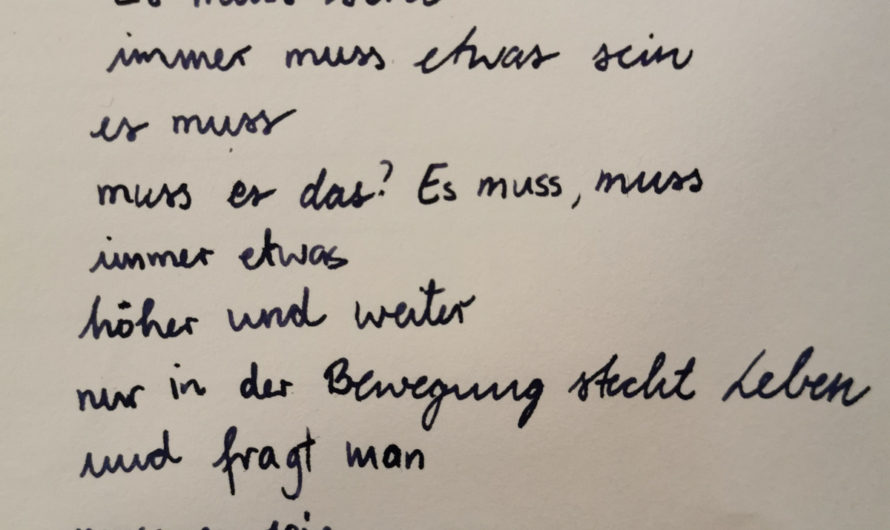 immer muss etwas sein
es muss
muss es das? Es muss, muss
immer etwas
höher und weiter
nur in der Bewegung steckt Leben
und fragt man